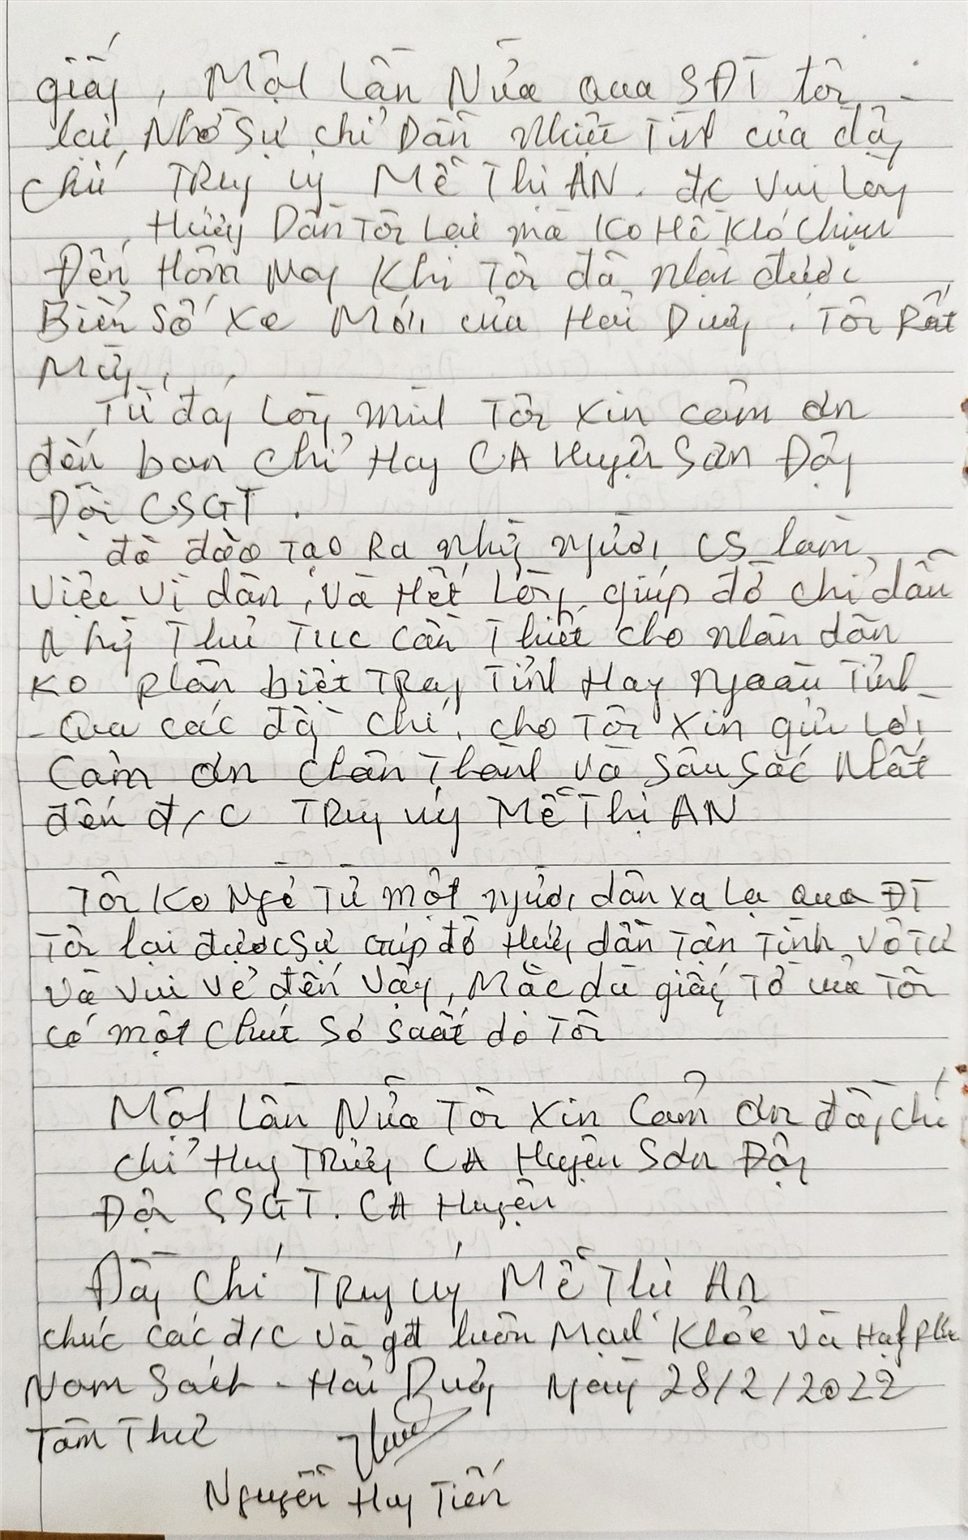 giấy, Một Lần Nữa qua SĐT tôi
lại, Nhờ Sự chỉ Dẫn Nhiệt Tình của đ/c
Chí TRung úy MỄ Thị AN. đ/c Vui Lòng
Hướng Dẫn Tôi Lại mà Ko Hề Khó Chịu
Đến Hôm Nay Khi Tôi đã nhận được
Biển Số Xe Mới của Hải Dương. Tôi Rất
Mừng.
Từ đáy Lòng mình Tôi xin cảm ơn
đến ban chỉ Huy CA Huyện Sơn Động
Đội CSGT.
đã đào TẠO Ra những người CS làm
Việc vì dân, và Hết Lòng giúp đỡ chỉ dẫn
những Thủ TỤC Cần Thiết cho nhân dân
KO phân biệt TRong Tỉnh Hay Ngoài Tỉnh
- Qua các đồng chí, cho Tôi Xin gửi Lời
Cảm ơn chân Thành và Sâu Sắc Nhất
đến đ/c TRung úy MỄ Thị AN
Tôi Ko Ngờ Từ một người dân xa Lạ qua ĐT
Tôi lại được sự Giúp đỡ Hướng dẫn Tận Tình, Vô Tư
và Vui vẻ đến Vậy, Mặc dù giấy Tờ của Tôi
có một chút Sơ Suất do Tôi
Một Lần Nữa Tôi Xin Cảm ơn đồng chí
Chỉ Huy TRưởng CA Huyện Sơn Động
Đội CSGT. CA Huyện
Đồng Chí TRung úy MỄ Thị AN
chúc các đ/c và gđ luôn Mạnh Khỏe và Hạnh phúc
Nam Sách - Hải Dương Ngày 28/2/2022
Tâm Thư
Nguyễn Huy Tiến